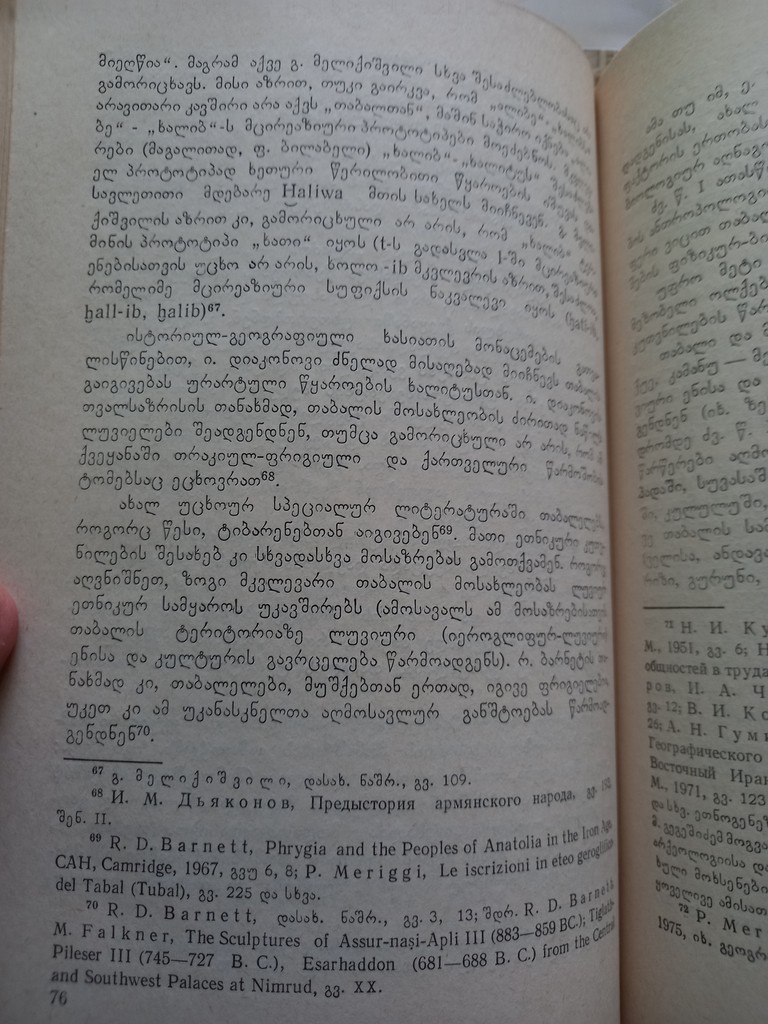 მიეღწია“. მაგრამ აქვე გ. მელიქიშვილი სხვა შესაძლებლობასაც
გამორიცხავს. მისი აზრით, თუკი გაირკვა, რომ „ალიბე“
არავითარი კავშირი არა აქვს „თაბალთან“, მაშინ საჭირო იქნება
ბე“ - „ხალიბ“-ს მცირეაზიური პროტოტიპები მოეძებნოს.
რები (მაგალითად, ფ. ბილაბელი) „ხალიბ“-„ხალიტუს“
ელ პროტოტიპად ხეთური წერილობითი წყაროების
სავლეთით მდებარე Ḫaliwa მთის სახელს მიიჩნევენ. გ. მელი-
ქიშვილის აზრით კი, გამორიცხული არ არის, რომ „ხალიბ“
მინის პროტოტიპი „ხათი“ იყოს (t-ს გადასვლა l-ში მცირეაზიური
ენებისათვის უცხო არ არის, ხოლო -ib მკვლევრის აზრით, შესაძლოა
რომელიმე მცირეაზიური სუფიქსის ნაკვალევი იყოს
ḫall-ib, ḫalib)⁶⁷.
ისტორიულ-გეოგრაფიული ხასიათის მონაცემების გათვა-
ლისწინებით, ი. დიაკონოვი ძნელად მისაღებად მიიჩნევს თაბალის
გაიგივებას ურარტული წყაროების ხალიტუსთან. ი. დიაკონოვის
თვალსაზრისის თანახმად, თაბალის მოსახლეობის ძირითად ნაწილს
ლუვიელები შეადგენდნენ, თუმცა გამორიცხული არ არის, რომ ამ
ქვეყანაში თრაკიულ-ფრიგიული და ქართველური წარმოშობის
ტომებსაც ეცხოვრათ⁶⁸.
ახალ უცხოურ სპეციალურ ლიტერატურაში თაბალელებს,
როგორც წესი, ტიბარენებთან აიგივებენ⁶⁹. მათი ეთნიკური კუთვ-
ნილების შესახებ კი სხვადასხვა მოსაზრებას გამოთქვამენ. როგორც
აღვნიშნეთ, ზოგი მკვლევარი თაბალის მოსახლეობას ლუვიურ
ეთნიკურ სამყაროს უკავშირებს (ამოსავალს ამ მოსაზრებისათვის
თაბალის ტერიტორიაზე ლუვიური (იეროგლიფურ-ლუვიური)
ენისა და კულტურის გავრცელება წარმოადგენს). რ. ბარნეტის თა-
ნახმად კი, თაბალელები, მუშქებთან ერთად, იგივე ფრიგიელები,
უკეთ კი ამ უკანასკნელთა აღმოსავლურ განშტოებას წარმოად-
გენდნენ⁷⁰.
⁶⁷ გ. მელიქიშვილი, დასახ. ნაშრ., გვ. 109.
⁶⁸ И. М. Дьяконов, Предыстория армянского народа, გვ.
შენ. II.
⁶⁹ R. D. Barnett, Phrygia and the Peoples of Anatolia in the Iron Age,
CAH, Camridge, 1967, გვუ 6, 8; P. Meriggi, Le iscrizioni in eteo geroglifico
del Tabal (Tubal), გვ. 225 და სხვა.
⁷⁰ R. D. Barnett, დასახ. ნაშრ., გვ. 3, 13; შდრ. R. D. Barnett,
M. Falkner, The Sculptures of Assur-naşi-Apli III (883—859 BC.); Tiglath-
Pileser III (745—727 B. C.), Esarhaddon (681—688 B. C.) from the Central
and Southwest Palaces at Nimrud, გვ. XX.
76
ამა თუ იმ, ე.
დადგენისას, ახალ
ფაქტორის ერთობას
ძვ. წ. I ათასწ
უფრო მეტი
თაბალი და მ
ქვე. კამანუ — მე
ური ენისა და
გენდნენ (იხ. ზე
დრომდე ძვ. წ.
წარწერები აღმო
პადაში, სუვასაშ
ში, კულულუში,
ე თაბალის სამ
რიზი, გურუნი,
⁷¹ Н. И. Ку
М., 1951, გვ. 6; Н
общностей в труда
ров, И. А. Ч
გვ. 12; В. И. Ко
26; А. Н. Гуми
Географического
Восточный Иран
М., 1971, გვ. 123
და სხვ. ეთნოგენეზ
მ. გეგეშიძემ მოგვა
არქეოლოგიისა და
ხული მოხსენები
ყოველივე ამისათ
⁷² P. Mer
1975, იხ. გეოგრ